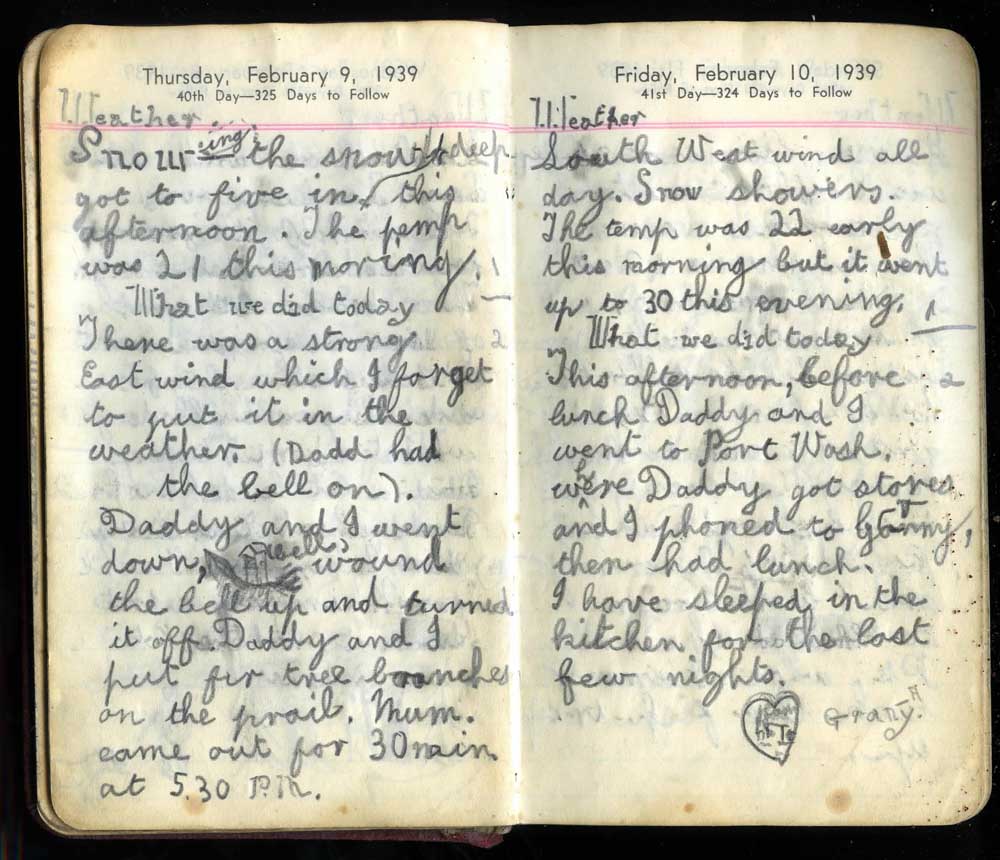 Thursday, February 9, 1939
40th Day—325 Days to Follow
Weather.
Snowing. the snow deep
got to five in. this
afternoon. The pemp
was 21 this moring. 1
What we did today
There was a strong 2
East wind which I forget
to put it in the
weather. (Dadd had
the bell on).
Daddy and I went
down, (well) wound
the bell up and turned
it off. Daddy and I
put fir tree branches
on the prail. Mum.
came out for 30 min
at 5.30 P.M.
Friday, February 10, 1939
41st Day—324 Days to Follow
Weather
South West wind all
day. Snow showers.
The temp was 22 early
this morning but it went
up to 30 this evening. 1
What we did today
This afternoon, before 2
lunch Daddy and I
went to Port Wash.
were Daddy got stores
and I phoned to
then had lunch.
I have sleeped in the
kitchen for the last
few nights.
Grany.